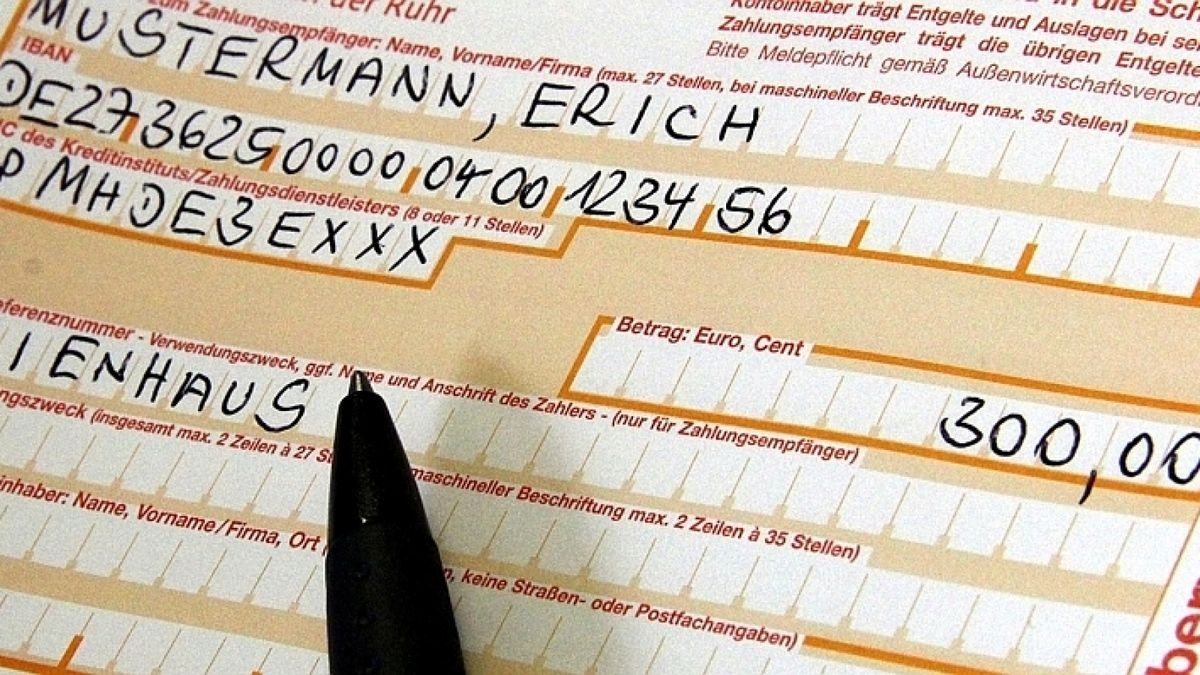 der Ruhr
in die
Kontoinhaber trägt Entgelte und Auslagen bei
Zahlungsempfänger trägt die übrigen Entgelte
Bitte Meldepflicht gemäß Außenwirtschaftsverord
zum Zahlungsempfänger: Name, Vorname/Firma (max. 27 Stellen, bei maschineller Beschriftung max. 35 Stellen)
MUSTERMANN, ERICH
IBAN
DE27 3625 0000 0400 1234 56
des Kreditinstituts/Zahlungsdienstleisters (8 oder 11 Stellen)
PMHDE3EXXX
Betrag: Euro, Cent
300,00
eferenznummer - Verwendungszweck, ggf. Name und Anschrift des Zahlers - (nur für Zahlungsempfänger)
IENHAUS
ngszweck (insgesamt max. 2 Zeilen à 27 maschineller Beschriftung max. 2 Zeilen à 35 Stellen)
inhaber: Name, Vorname/Firma, Ort keine Straßen- oder Postfachangaben)